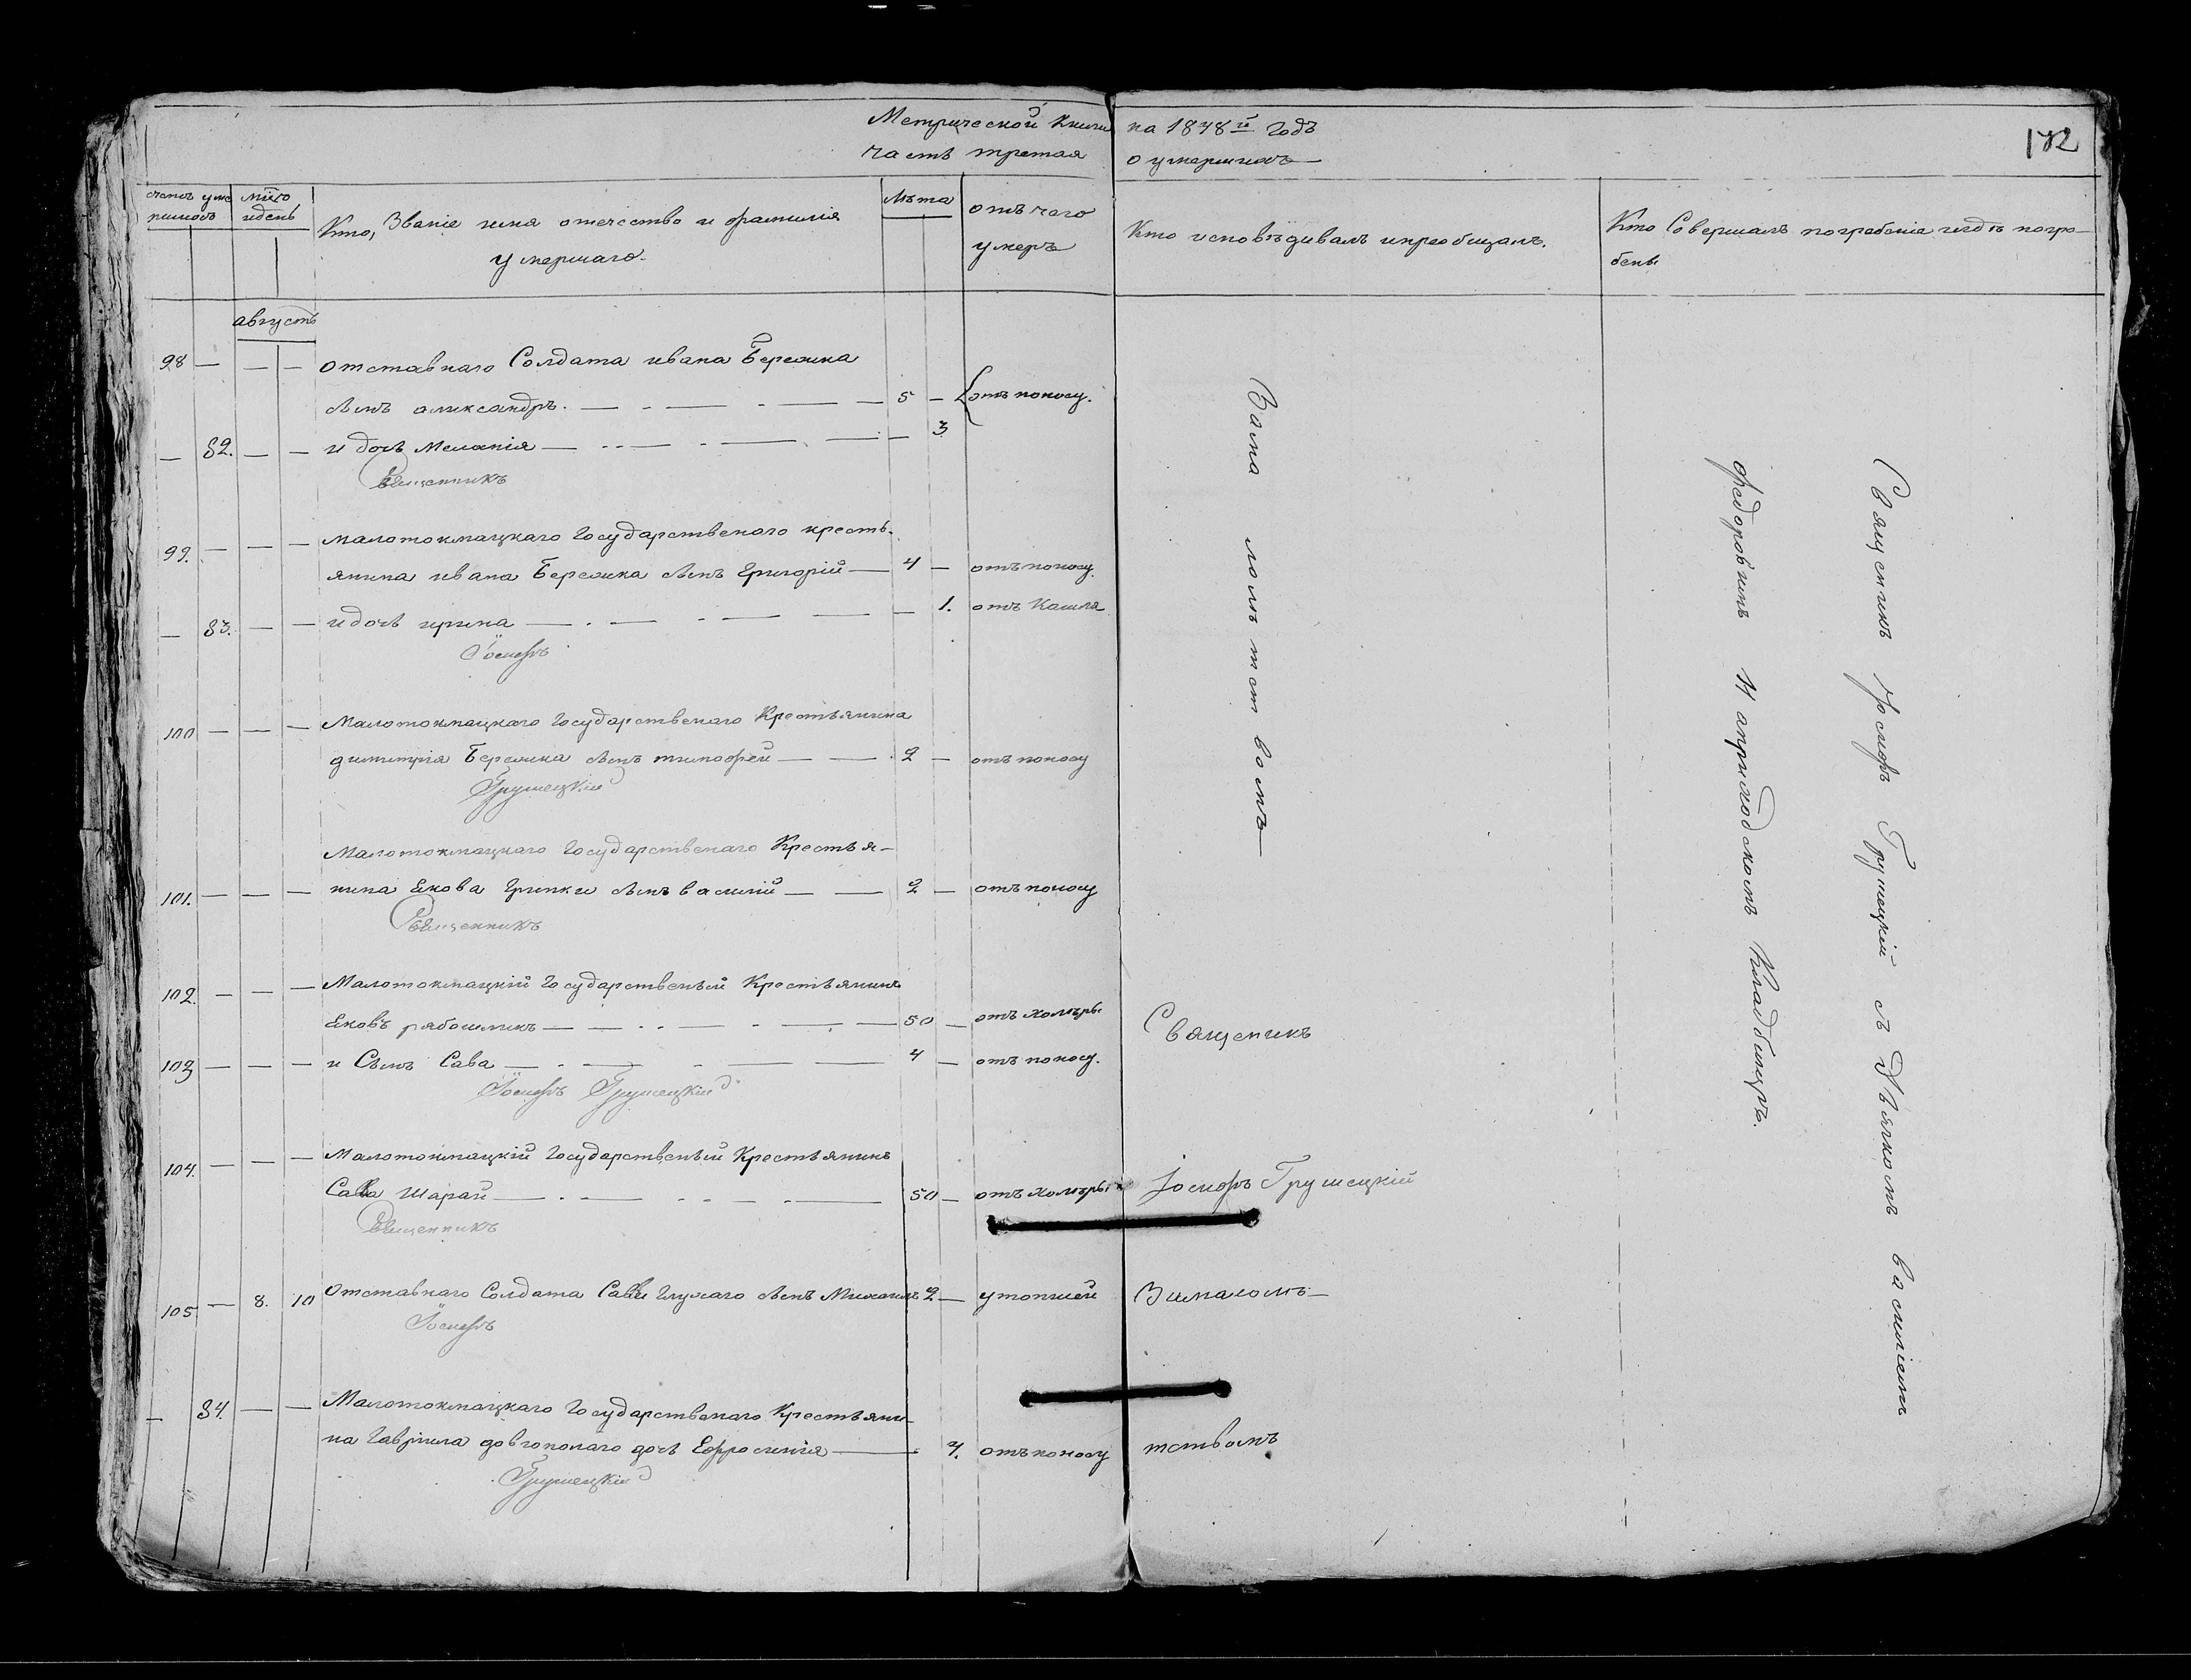 Метрической Книги на 1848й Годъ
часть третая о умершихъ
172
счетъ уме
ршихъ
мцъ
и день
Кто, Званіе имя отечество и фамилія
умершаго.
лѣта
отъ чего
умеръ
Кто исповѣдивалъ и преобщалъ.
Кто Совершалъ погребеніе и гдѣ погре-
бены
августъ
98 — — — отставнаго Солдата ивана Бережка
сынъ александръ. — 5 — отъ поносу.
— 82. — — и дочь Меланія — — 3
Священникъ
99. — — — малотокмацкаго Государственаго кресть-
янина ивана Бережка сынъ Григорій — 4 — отъ поносу.
— 83. — — и дочь ирина — — 1. отъ Кашля
Іосифъ
100 — — — Малотокмацкаго Государственаго Крестьянина
димитрія Бережка сынъ тимофей — 2 — отъ поносу
Грушецкій
Малотокмацкаго Государственаго Крестья-
101. — — — нина Якова Гринки сынъ василій — 2 — отъ поносу
Священникъ
102. — — — Малотокмацкій Государственый Крестьянинъ
Яковъ — 50 — отъ холеры
103 — — — и Сынъ Сава — 4 — отъ поносу.
Іосифъ Грушецкій
104. — — — Малотокмацкій Государственый Крестьянинъ
Сава Шарай — 50 — отъ холеры
Священникъ
105 — 8. 10 Отставнаго Солдата Савы Глухаго сынъ Михаилъ 2 — утопшей
Іосифъ
— 84. — — Малотокмацкаго Государственаго Крестьяни-
на Гавріила довгополаго дочь Ефросинія — 7. отъ поносу
Грушецкій
За малолѣтствомъ
Священикъ
Іосифъ Грушецкій
За малолѣ-
тствомъ
Священикъ Іосифъ Грушецкій съ Дьячкомъ василіемъ
федоровимъ На приходскомъ Кладбищѣ.